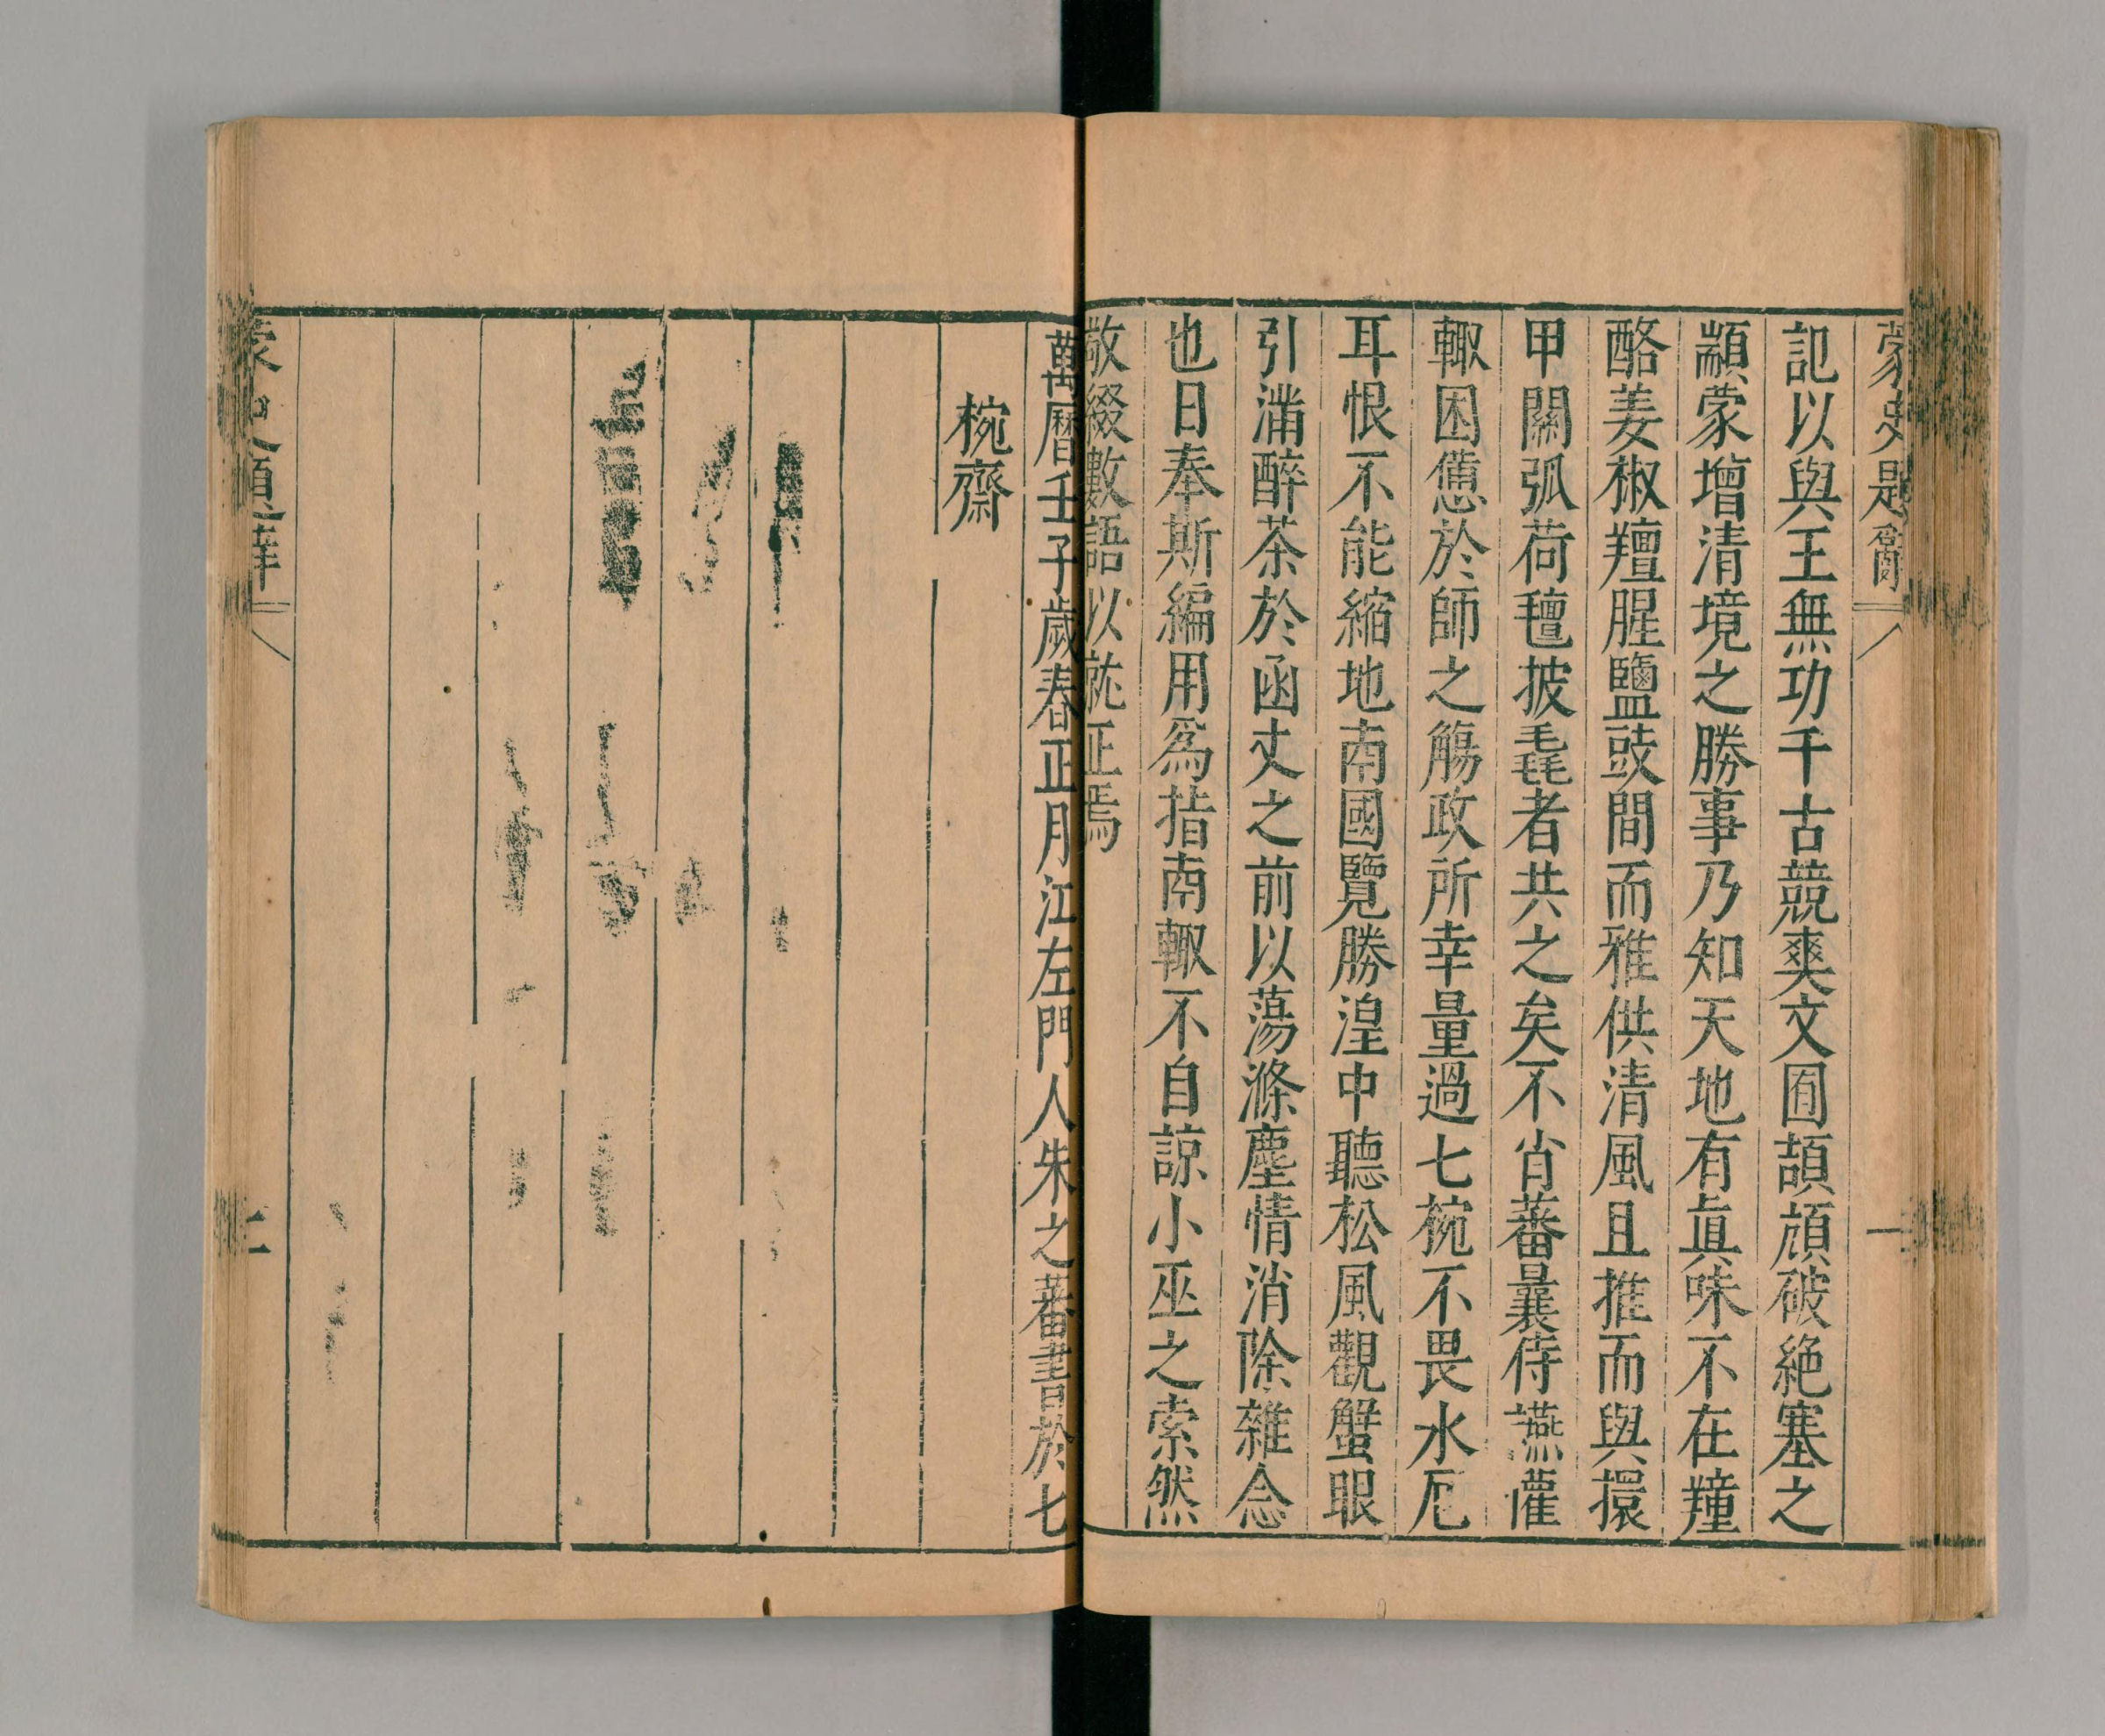 蒙史題辭
一
記以與王無功千古競爽文囿頡頏破絶塞之
顓蒙增清境之勝事乃知天地有眞味不在羶
酪姜椒羶腥鹽豉間而雅供清風且推而與擐
甲關弧荷氊披毳者共之矣不肖蕃曩侍讌雚
輙困憊於師之觴政所幸量過七椀不畏水厄
耳恨不能縮地南國覽勝湟中聽松風觀蟹眼
引滿醉茶於函丈之前以蕩滌塵情消除雜念
也日奉斯編用爲指南輙不自諒小巫之索然
敬綴數語以就正焉
萬曆壬子歲春正月江左門人朱之蕃書於七
椀齋
二